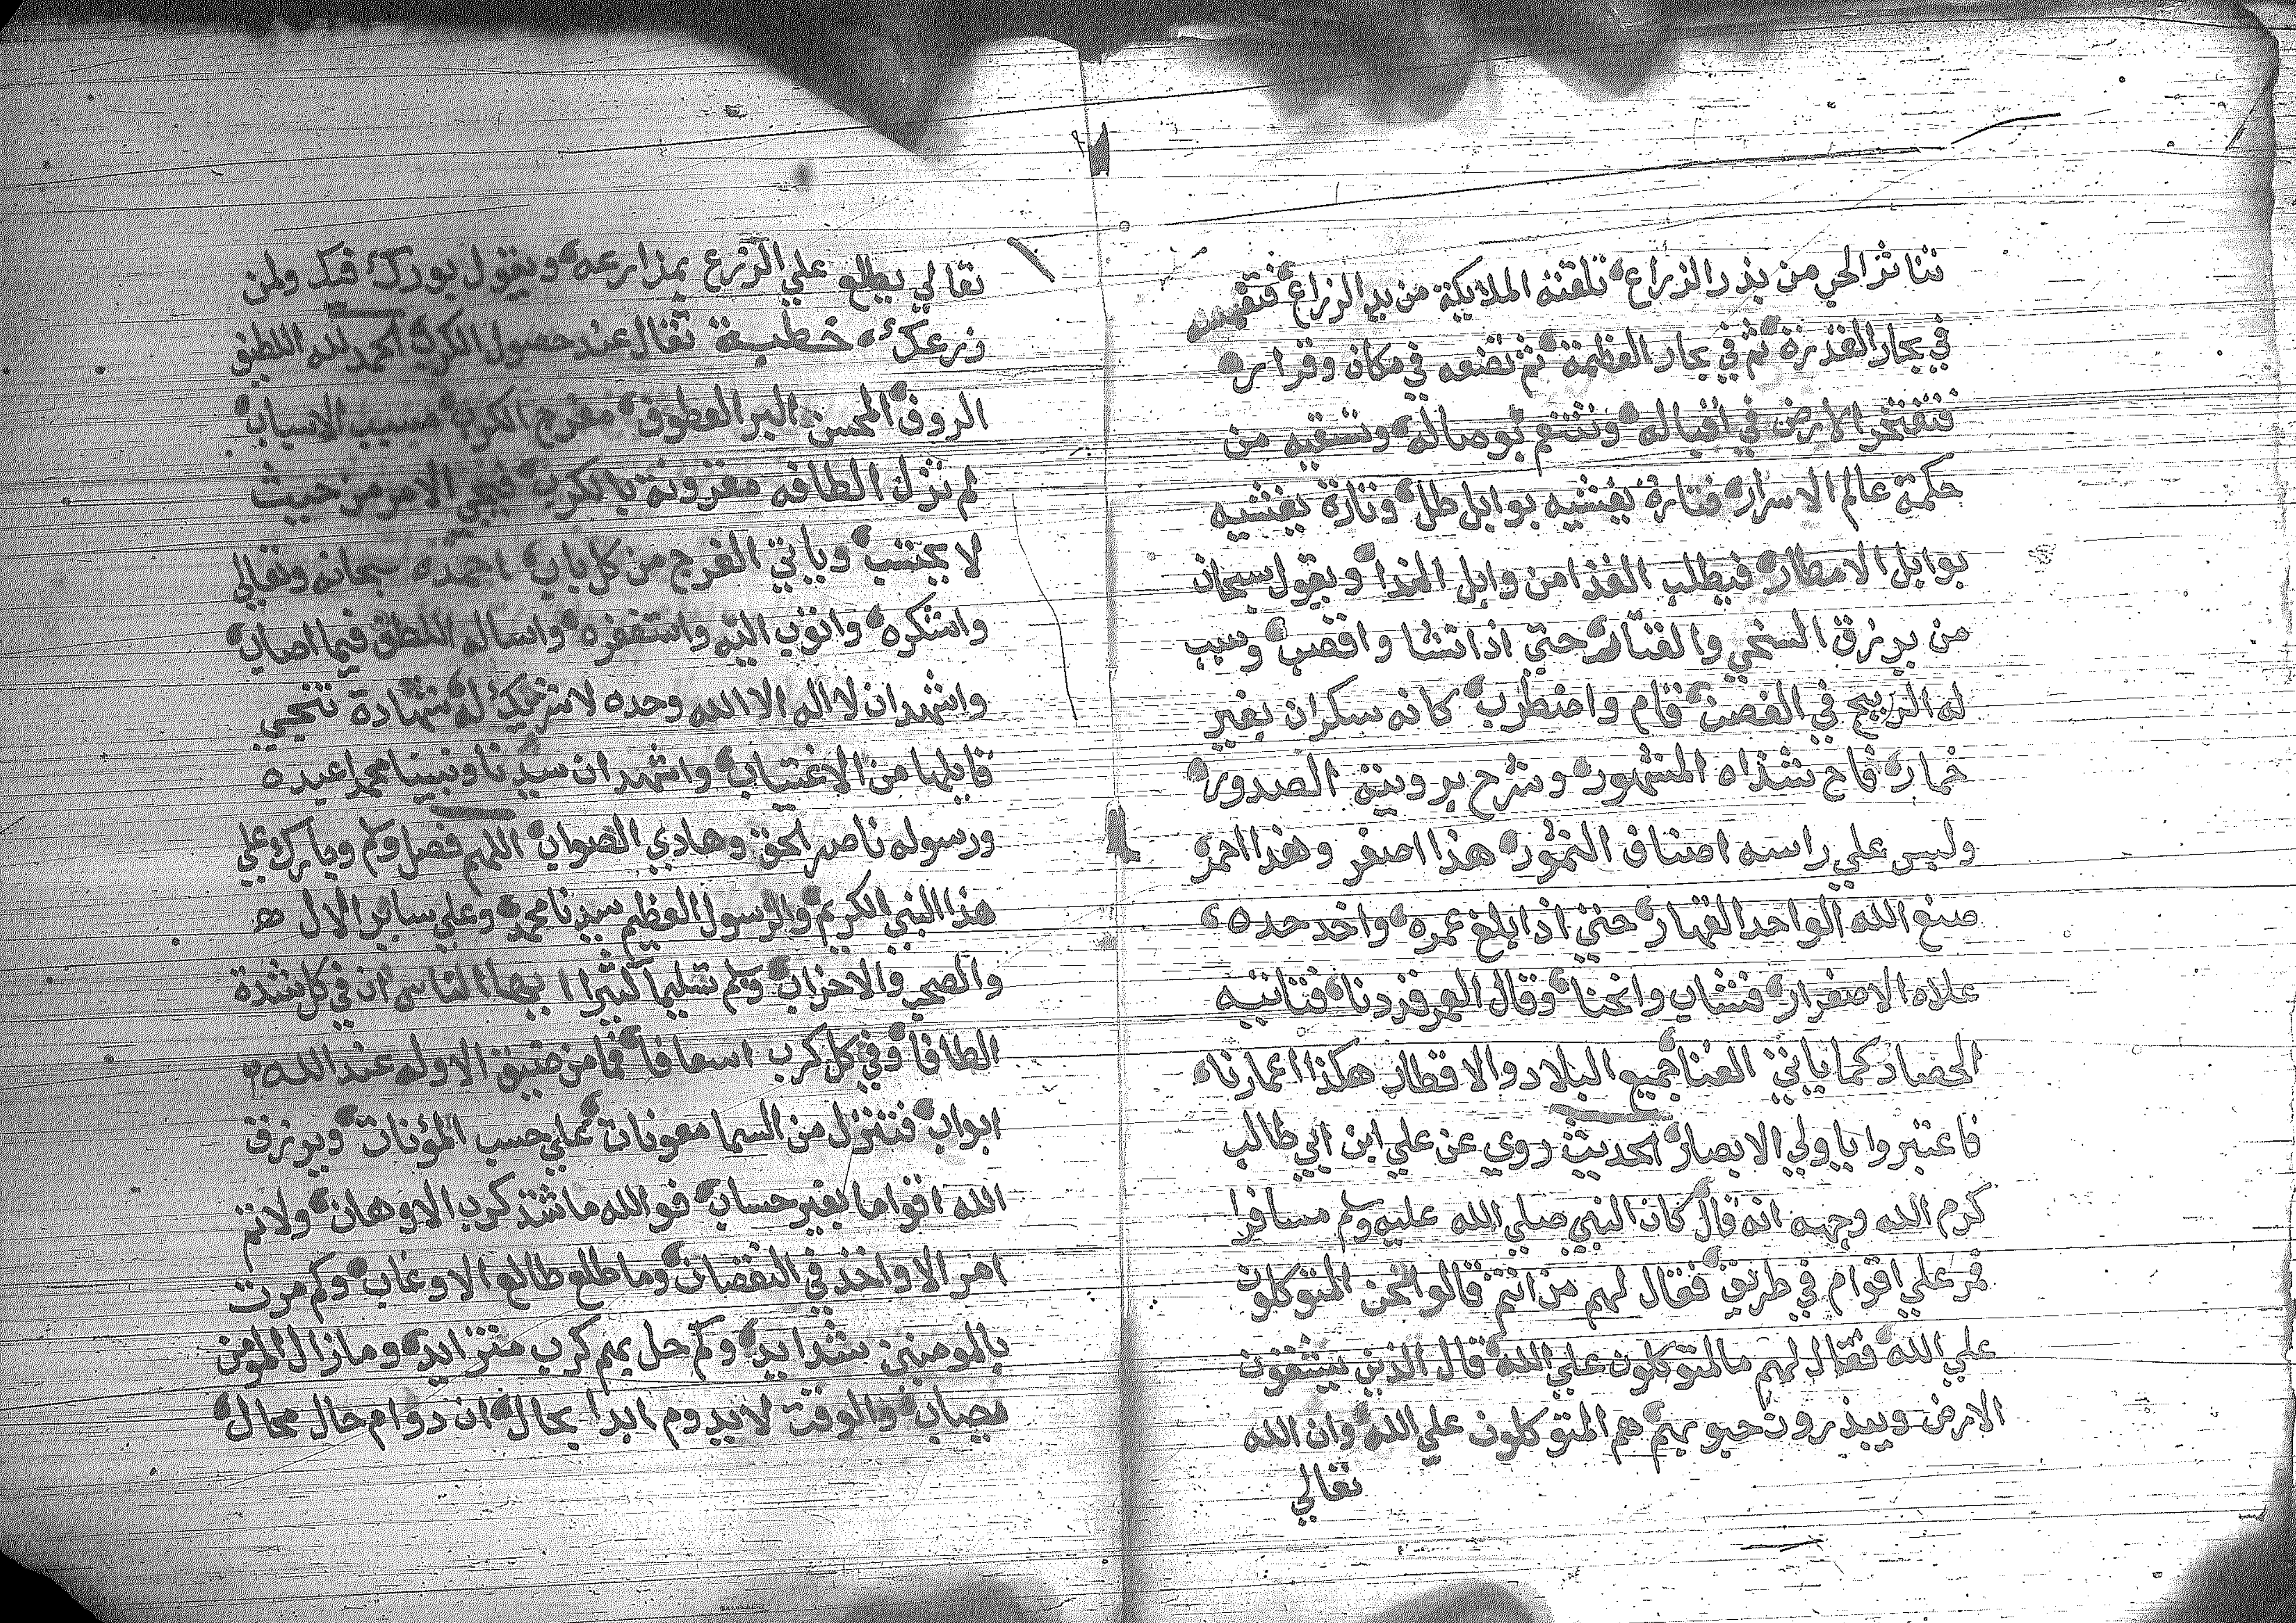 تناثر الحب من بذر الزراع تلقته الملايكة من يد الزراع فتغمسه
في بحار القدرة ثم في بحار العظمة ثم تضعه في مكان وقراره
فتفتخر الارض في اقباله وتتنعم بوصاله وتسقيه من
حكمة عالم الاسرار فتارة يغشيه بوابل طل وتارة يغشيه
بوابل الامطار فيطلب الغذا من وابل الندا ويقول سبحان
من يرزق السخي والقتار حتي اذا نشا واقصب وسبب
له الريح في الغصن قام واضطرب كانه سكران بغير
خمار فاح شذاه المشهور وشرح برويته الصدور
ولبس علي راسه اصناف النمور هذا اصفر وهذا احمر
صنع الله الواحد القهار حتي اذا بلغ عمره واخذ حده
علاه الاصفرار فشاب وانحنا وقال العمر قد دنا فتاتيه
الحصاد كما ياتي الفنا جميع البلاد والاقطار هكذا اعمارنا
فاعتبروا ياولي الابصار الحديث روي عن علي ابن ابي طالب
كرم الله وجهه انه قال كان النبي صلي الله عليه وسلم مسافرا
فمر علي اقوام في طريق فقال لهم من انتم قالوا نحن المتوكلون
علي الله فقال لهم مالمتوكلون علي الله قال الذين يشقون
الارض ويبذرون حبوبهم هم المتوكلون علي الله وان الله
تعالي
تعالي يطلع علي الزرع بمذارعه ويقول بورك فيك ولمن
زرعك خطبة تقال عند حصول الكرب الحمد لله اللطيف
الروف المحسن البر العطوف مفرج الكرب مسبب الاسباب
لم تزل الطافه مقرونة بالكرب فيجي الامر من حيث
لا يحتسب وياتي الفرج من كل باب احمده سبحانه وتعالي
واشكره واتوب اليه واستغفره واساله اللطف فيما اصاب
واشهد ان لا اله الا الله وحده لا شريك له شهادة تنجي
قايلها من الاغتياب واشهد ان سيدنا ونبينا محمدا عبده
ورسوله ناصر الحق وهادي الصواب اللهم فصل وسلم وبارك علي
هذا النبي الكريم والرسول العظيم سيدنا محمد وعلي ساير الال
والصحب والاحزاب وسلم تسليما كثيرا ايها الناس ان في كل شدة
الطافا وفي كل كرب اسعافا فما من ضيق الا وله عند الله
ابواب فتتنزل من السما معونات علي حسب المؤنات ويرزق
الله اقواما بغير حساب فوالله ماشتد كرب الا وهان ولا تم
امر الا واخذ في النقصان وما طلع طالع الا وغاب وكم مرت
بالمومنين شدايد وكم حل بهم كرب متزايد وما زال المومن
يصاب والوقت لا يدوم ابدا بحال ان دوام حال محال